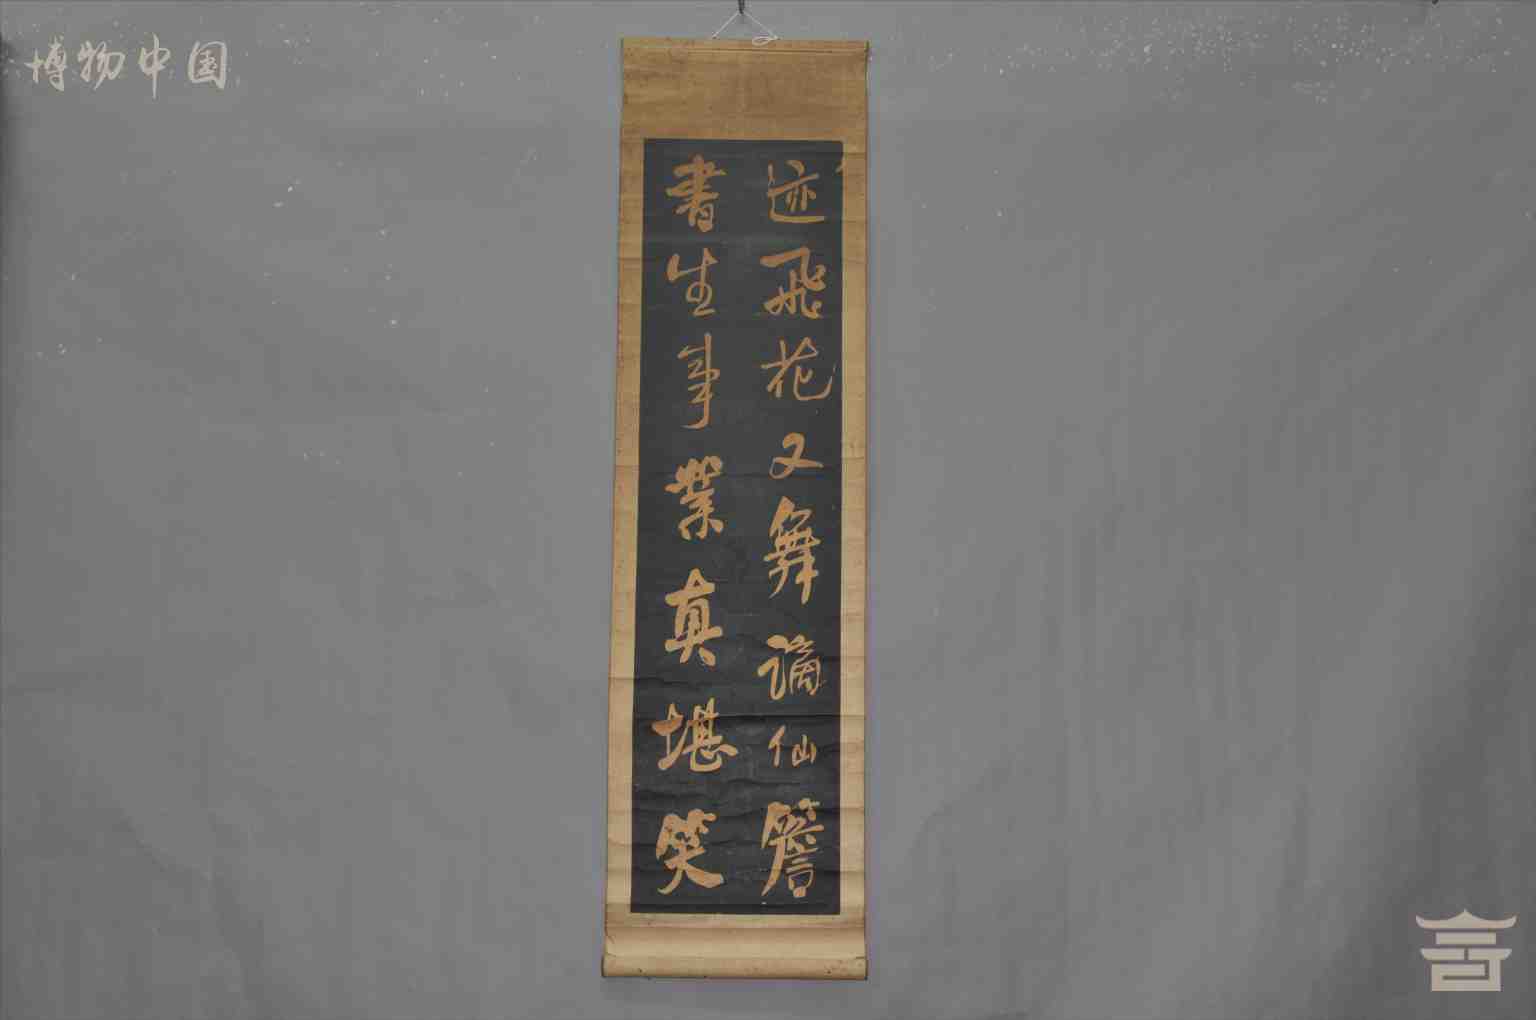 博物中国
迹飛花又舞謫仙簷
書生事業真堪笑